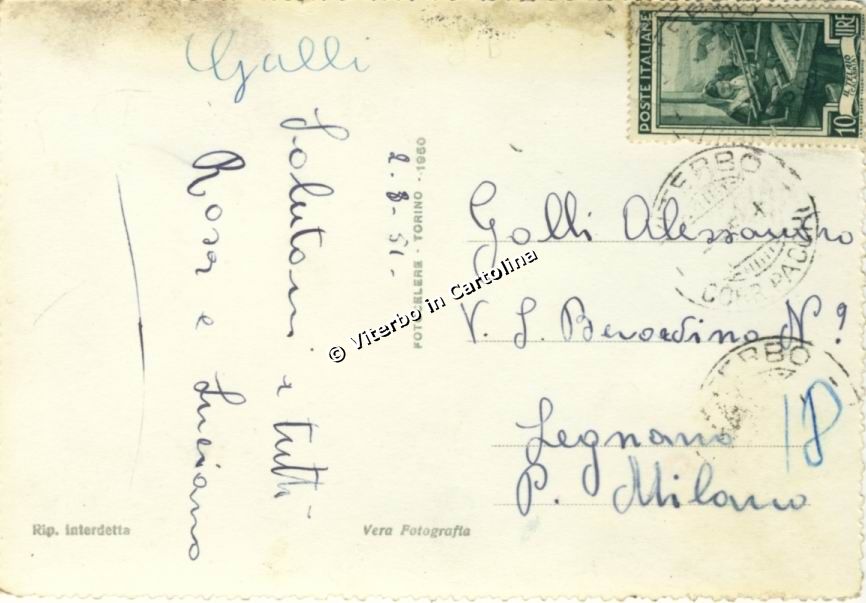 Galli
2-8-51-
Saluton i tutti-
Rosa e Luciano
FOTOCELERE - TORINO - 1950
© Viterbo in Cartolina
POSTE ITALIANE
10
LIRE
VITERBO
VITERBO
CORR. PACCHI
Galli Alessandro
V. S. Berardino Nº
18
Legnano
P. Milano
Rip. interdetta
Vera Fotografia